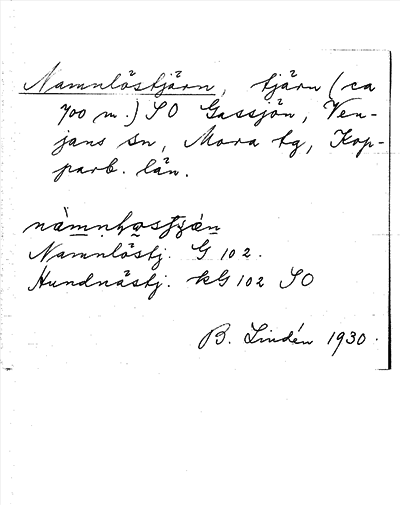 Namnlöstjärn, tjärn (ca
700 m.) SO Gassjön, Ven-
jans sn, Mora tg, Kop-
parb. län.
Namnlöstj. G 102.
Hundnästj. kG 102 SO
B. Lindén 1930.